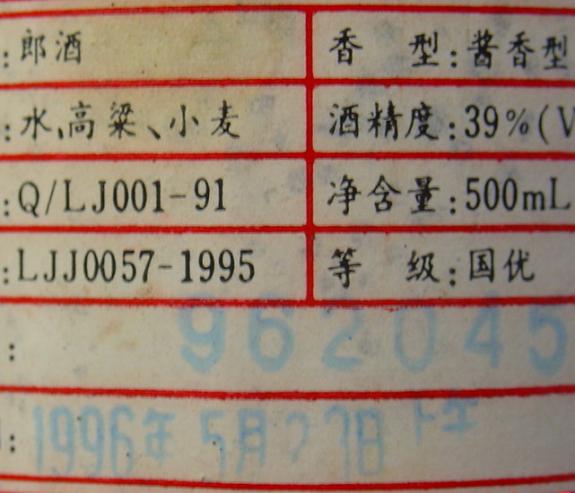 :郎酒 香 型:酱香型
:水、高粱、小麦 酒精度:39%(V
:Q/LJ001-91 净含量:500mL
:LJJ0057-1995 等 级:国优
: 962045
: 1996年 5月 日 上午